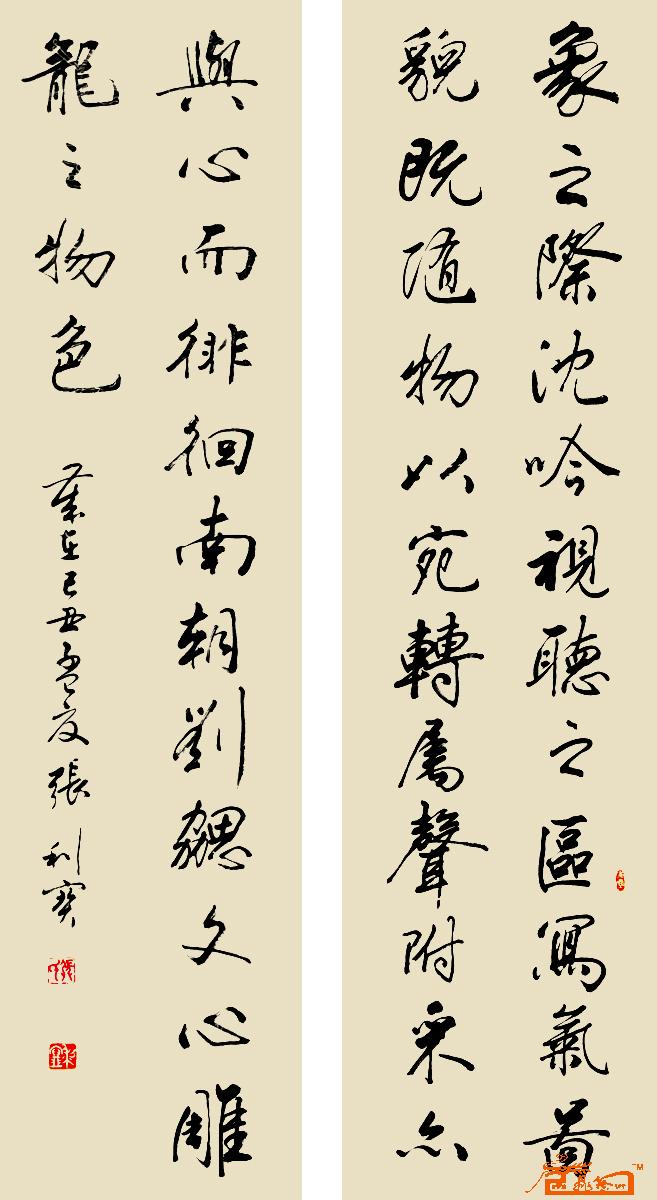 象之際沈吟視聽之區寫氣圖
貌既隨物以宛轉屬聲附采亦
與心而徘徊南朝劉勰文心雕
龍之物色
歲在己丑孟夏張利寶